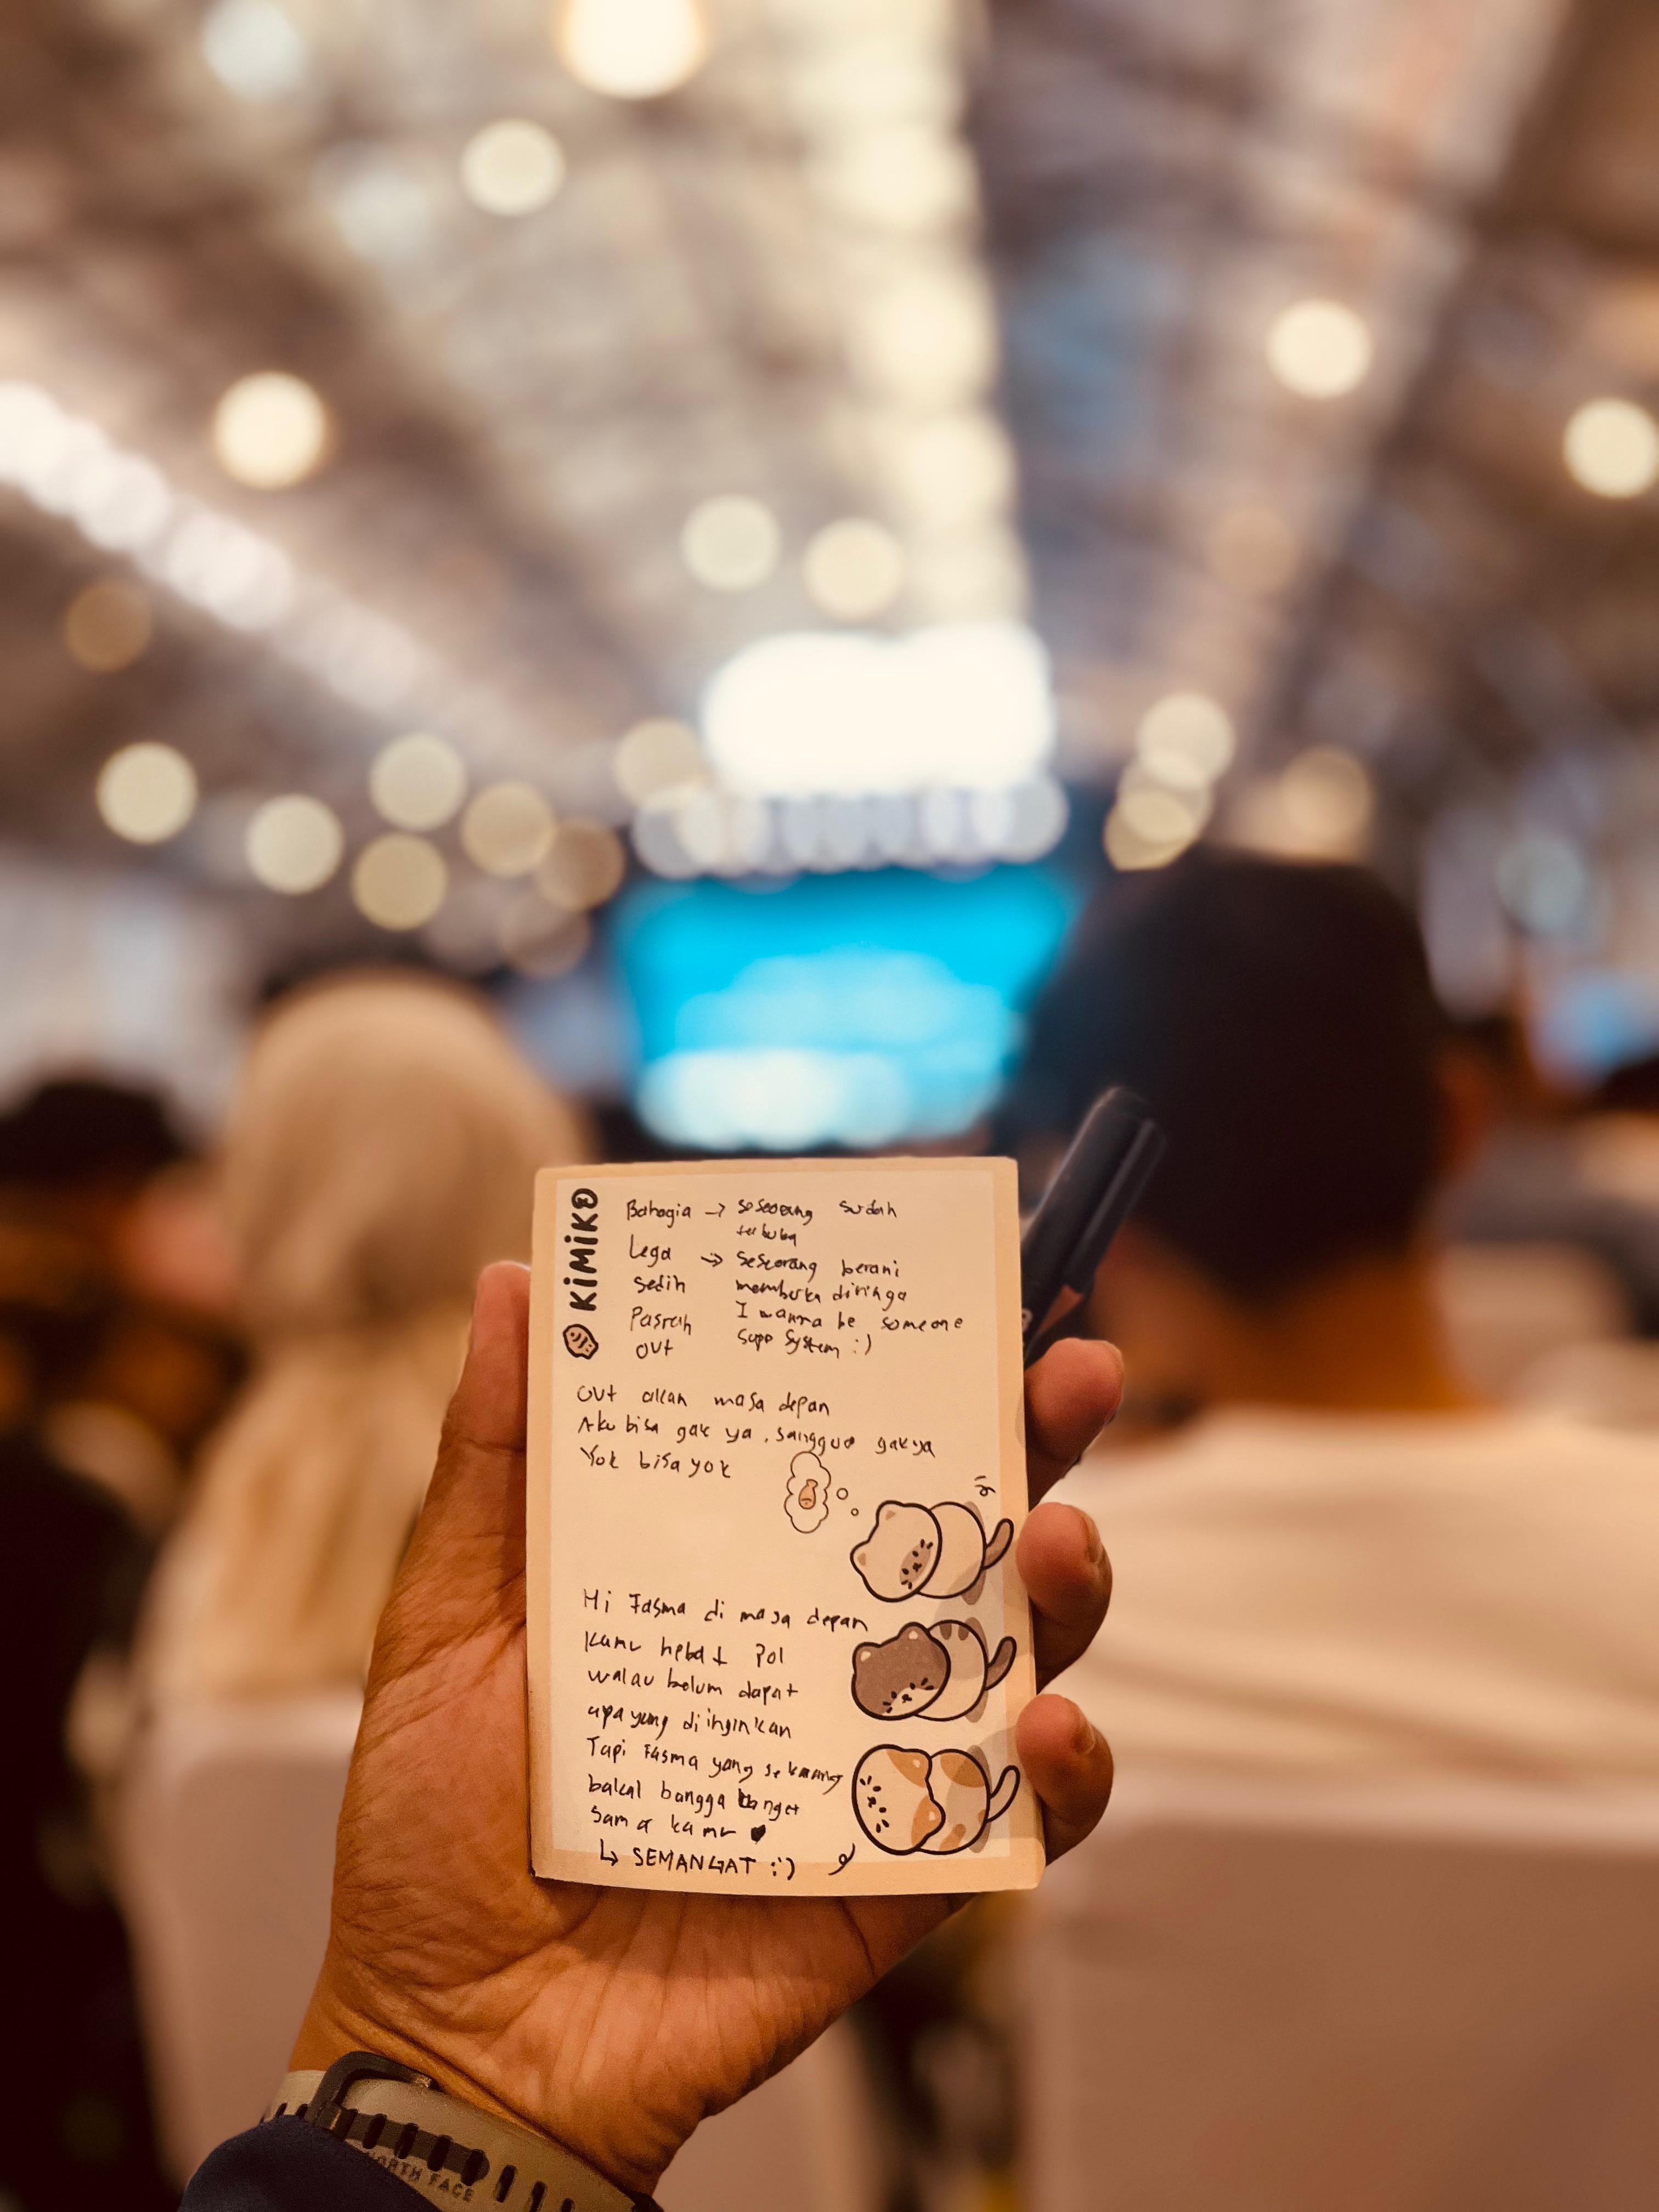 KIMIKO
Bahagia → seseorang sudah
terbuka
Lega → seseorang berani
sedih membuka dirinya
Pasrah I wanna be someone
out supp system :)
out akan masa depan
Aku bisa gak ya, sanggup gak ya
Yok bisa yok
Hi Fasma di masa depan
kamu hebat pol
walau belum dapat
apa yang diinginkan
Tapi Fasma yang sekarang
bakal bangga banget
sama kamu ♥
↳ SEMANGAT :')
NORTH FACE